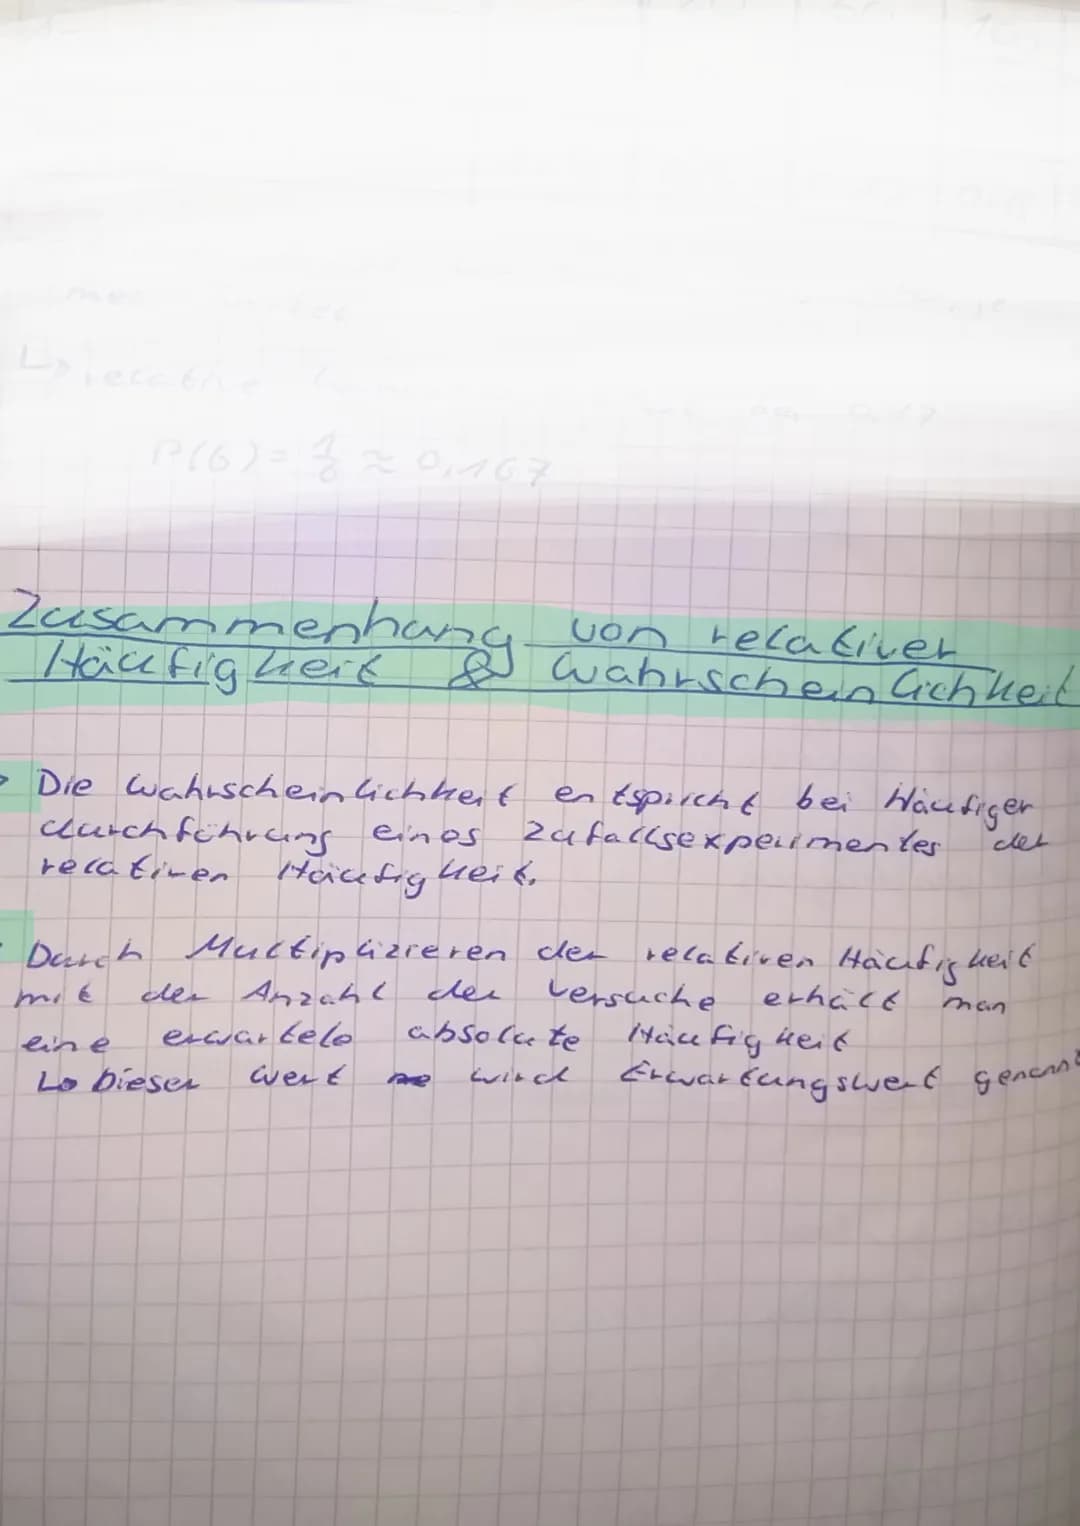 relative
P(6) = 1/6 ≈ 0,167
Zusammenhang von relativer
Häufigkeit & Wahrscheinlichkeit
Die Wahrscheinlichkeit entspircht bei Häufiger
durchführung eines Zufallsexperimentes der
relativen Häufigkeit.
Durch Multiplizieren der relativen Häufigkeit
mit der Anzahl der Versuche erhält man
eine erwartete absolute Häufigkeit
↳ Dieser Wert wird Erwartungswert genannt